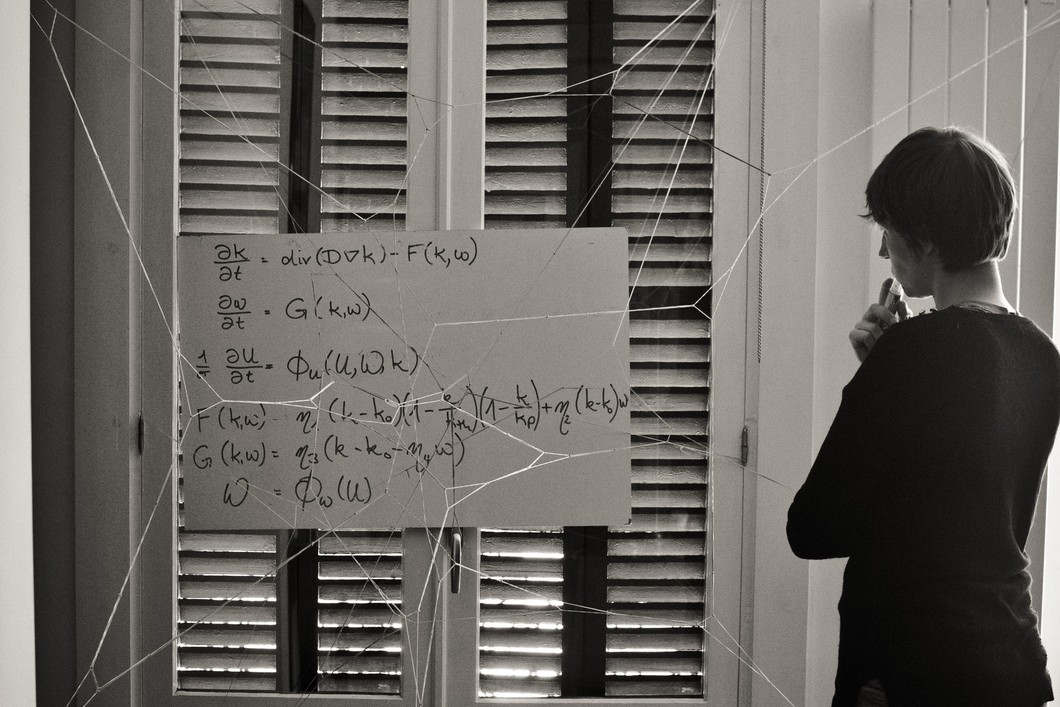 ∂k/∂t = div(D∇k) - F(k,w)
∂w/∂t = G(k,w)
1/τ ∂U/∂t = ϕᵤ(U,W,k)
F(k,w) = η₁(k-k₀)(1- )(1-k/kₚ)+η₂(k-k₀)w
G(k,w) = η₃(k-k₀-η₄w)
W = ϕ_w(U)